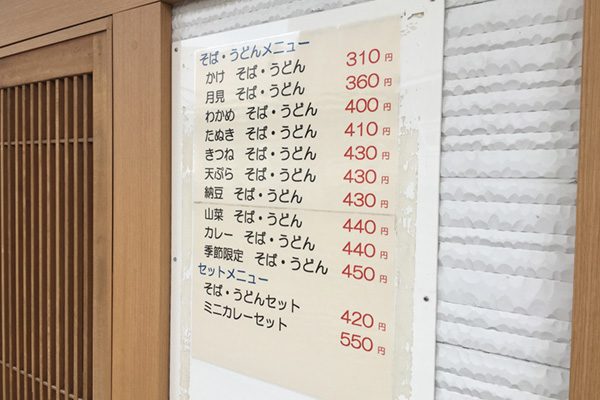 そば・うどんメニュー
かけ そば・うどん 310円
月見 そば・うどん 360円
わかめ そば・うどん 400円
たぬき そば・うどん 410円
きつね そば・うどん 430円
天ぷら そば・うどん 430円
納豆 そば・うどん 430円
山菜 そば・うどん 440円
カレー そば・うどん 440円
季節限定 そば・うどん 450円
セットメニュー
そば・うどんセット 420円
ミニカレーセット 550円